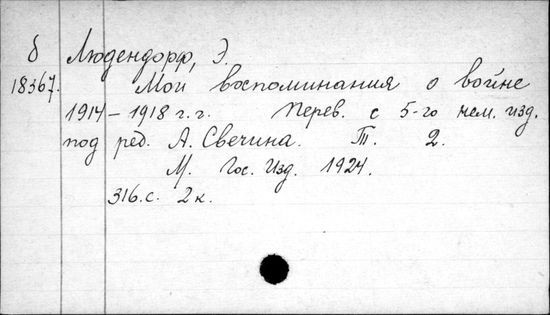 б Людендорф, Э.
18367. Мои воспоминания о войне
1914-1918 г.г. Перев. с 5-го нем. изд.
под ред. А. Свечина. Т. 2.
М. Гос. Изд. 1924.
316.с. 2к.